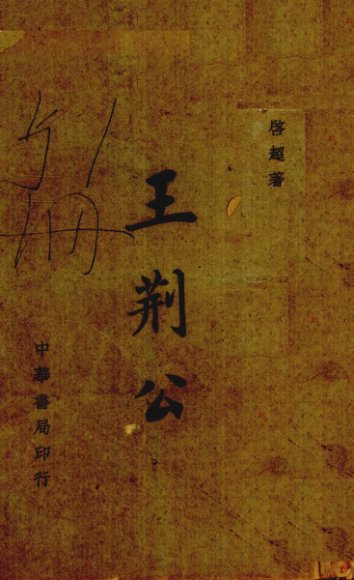 啓超著
王荆公
中華書局印行